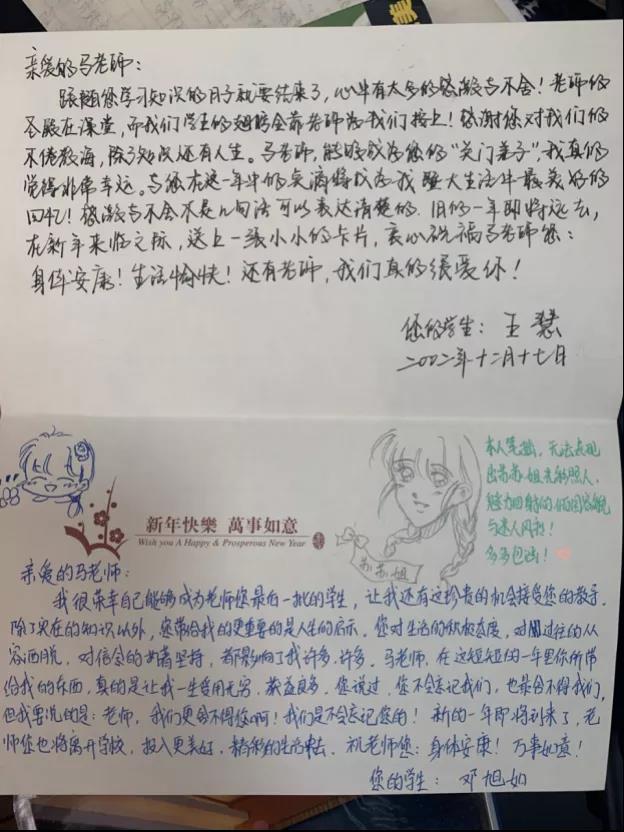 亲爱的马老师：
跟随您学习知识的日子就要结束了，心中有太多的感激与不舍！老师的
圣殿在课堂，而我们学生的翅膀全靠老师为我们接上！感谢您对我们的
不倦教诲，除了知识还有人生。马老师，能够成为您的“关门弟子”，我真的
觉得非常幸运。与您在这一年中的点滴将成为我医大生活中最美好的
回忆！感激与不舍不是几句话可以表达清楚的。旧的一年即将远去，
在新年来临之际，送上一张小小的卡片，衷心祝福马老师您：
身体安康！生活愉快！还有老师，我们真的很爱你！
您的学生：王慧
二〇〇二年十二月十七日
本人笔拙，无法表现
出苏苏姐光彩照人，
魅力四射的
与迷人风彩！
多多包涵！
苏苏姐
新年快樂 萬事如意
Wish you A Happy & Prosperous New Year
亲爱的马老师：
我很荣幸自己能够成为老师您最后一批的学生，让我还有这珍贵的机会接受您的教导。
除了实在的知识以外，您带给我的更重要的是人生的启示。您对生活的积极态度，对过往的从
容洒脱，对信念的执着坚持，都影响了我许多，许多。马老师，在这短短的一年里你所带
给我的东西，真的是让我一生受用无穷，获益良多。您说过，您不会忘记我们，也最舍不得我们，
但我要说的是：老师，我们更舍不得您啊！我们是不会忘记您的！新的一年即将到来了，老
师您也将离开学校，投入更美好、精彩的生活中去。祝老师您：身体安康！万事如意！
您的学生：邓旭如